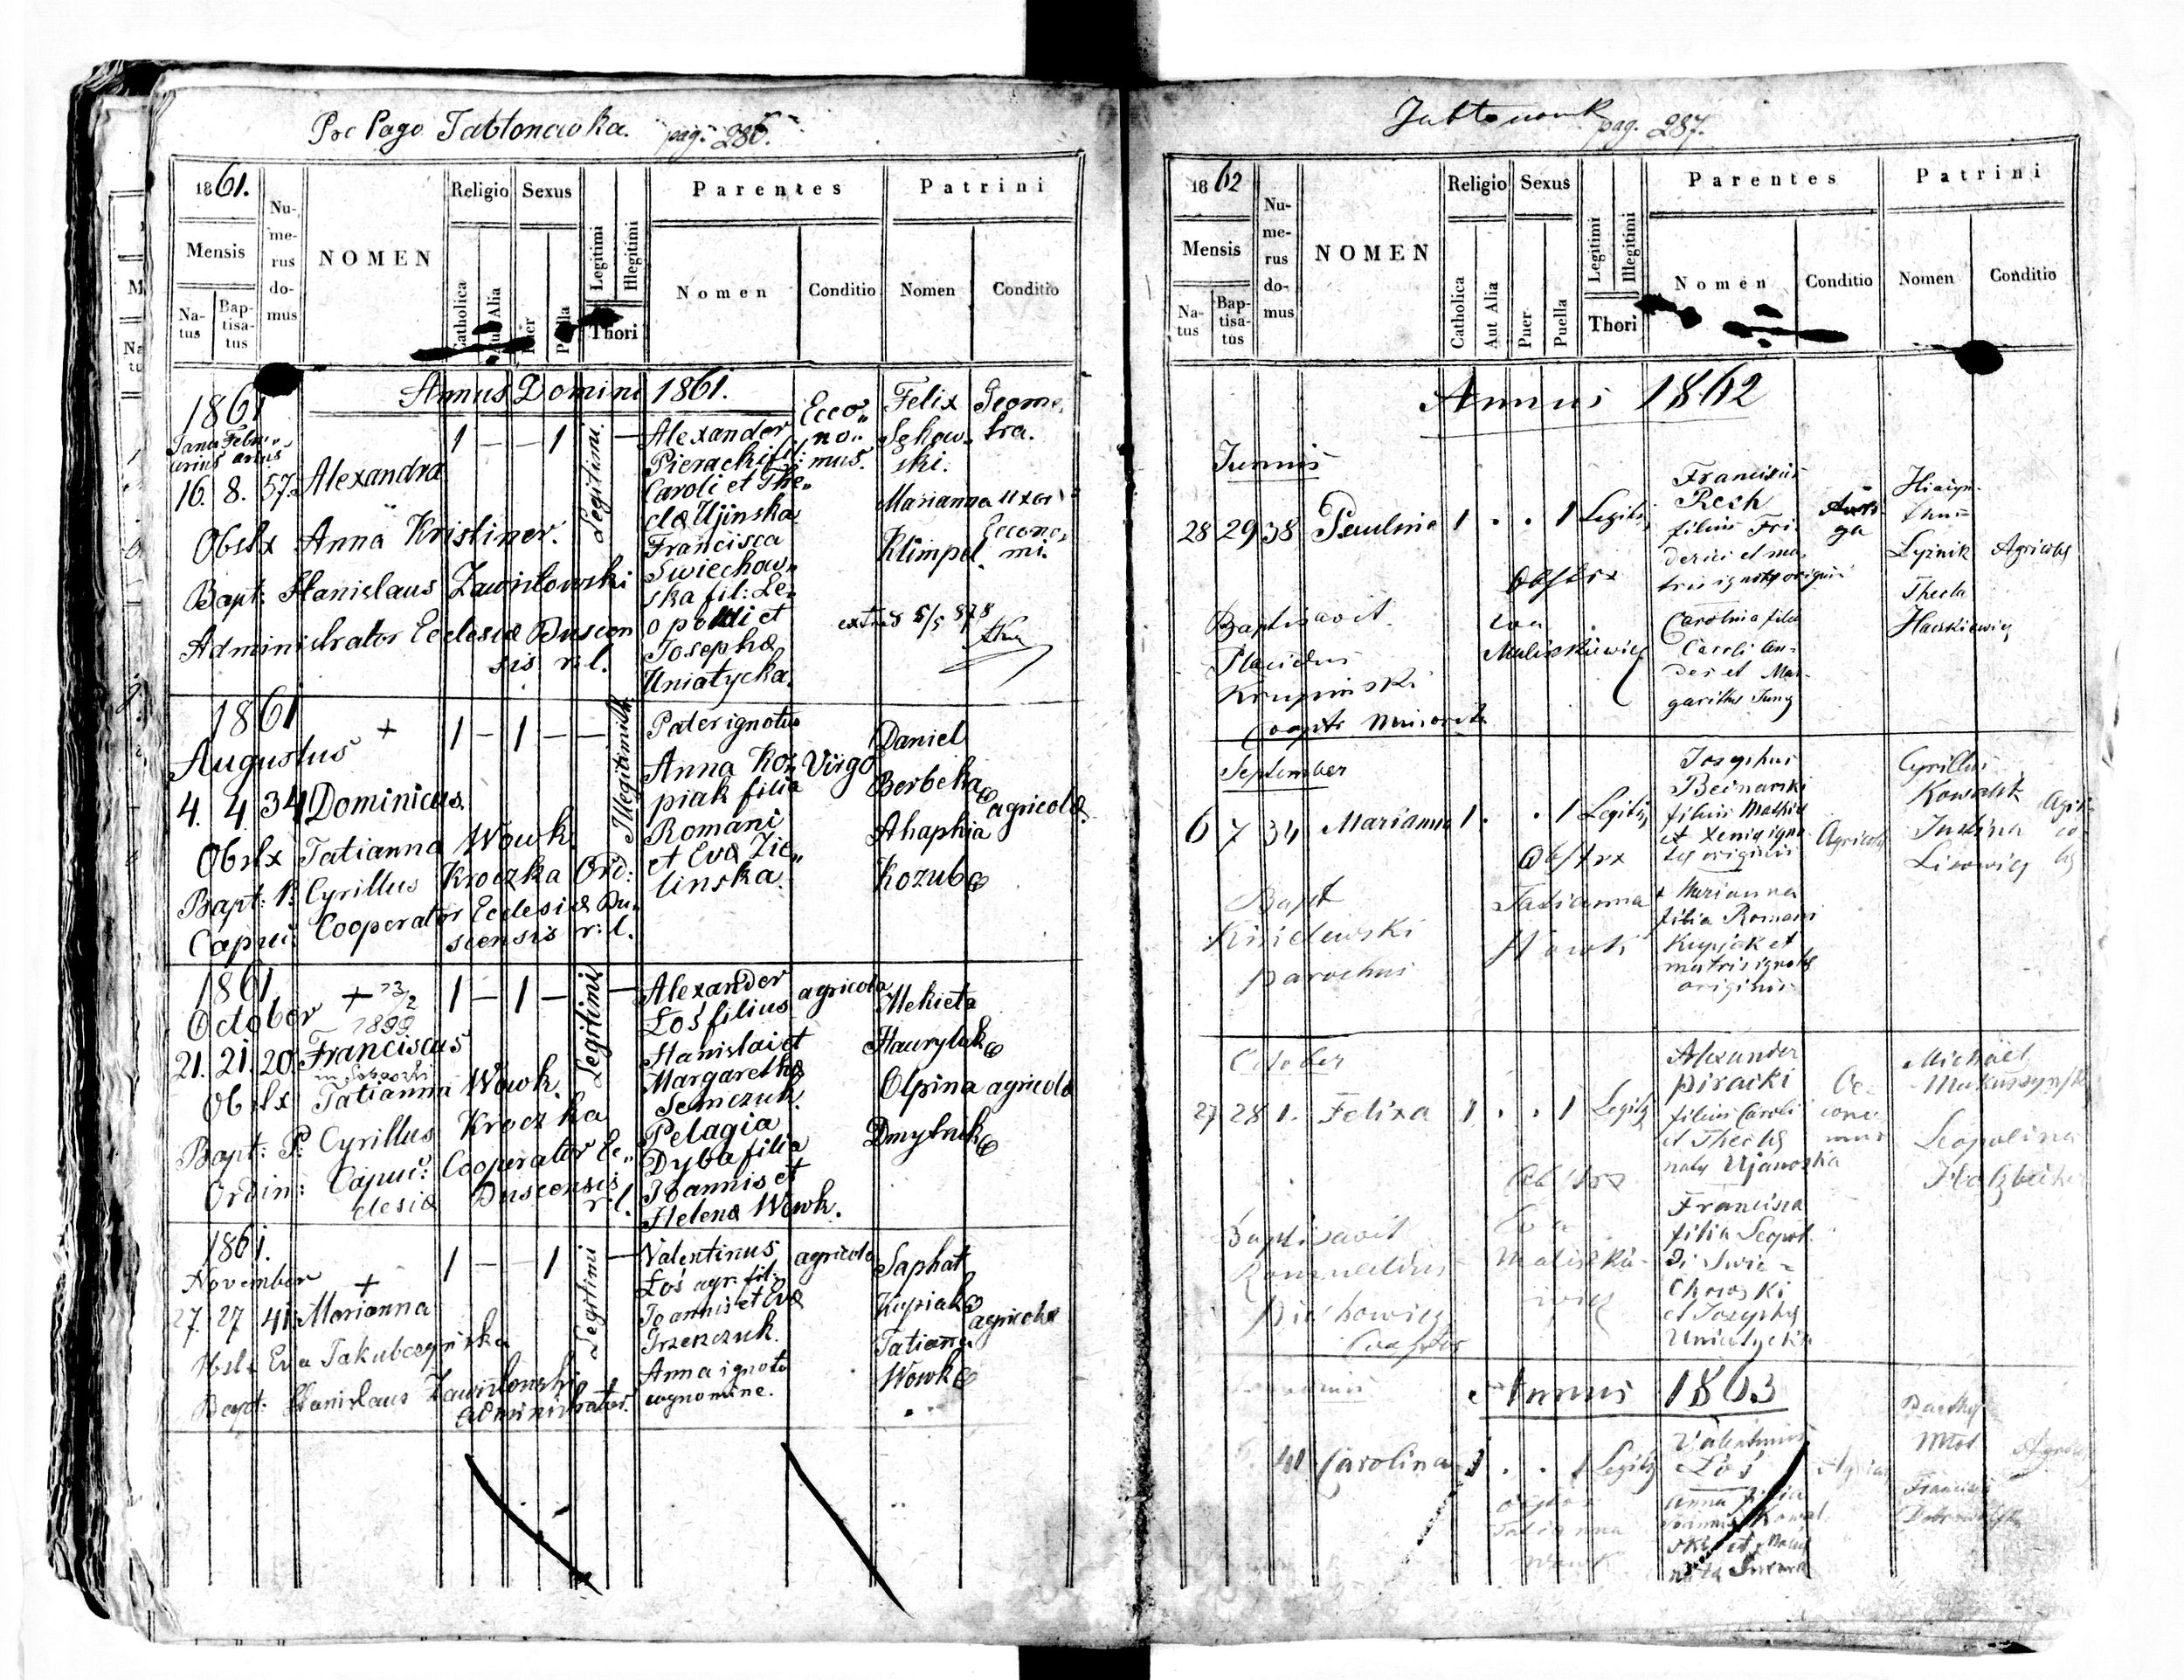 Pro Pago Jabłonowka. pag. 286.
1861.
Mensis
Na-
tus
Bap-
tisa-
tus
Nu-
me-
rus
do-
mus
NOMEN
Religio
Catholica
Aut Alia
Sexus
Puer
Puella
Legitimi
Illegitimi
Thori
Parentes
Nomen
Conditio
Patrini
Nomen
Conditio
Annus Domini 1861.
1861
Janu Febru
arius arius
16. 8. 57. Alexandra
1 – – 1 Legitimi –
Obstx Anna Kristiner.
Bapt: Stanislaus Zawiłowski
Administrator Ecclesiæ Duscen
sis r. l.
Alexander
Pieracki fil:
Caroli et The„
clæ Ujinska
Francisca
Swiechow„
ska fil: Le„
opoldi et
Josephæ
Uniatycka.
Eco„
no„
mus.
Felix
Sękow„
ski.
Geome„
tra.
Marianna uxor
Klimpel.
Econo„
mi.
extrad 5/5 878
1861
Augustus +
4. 4. 34 Dominicus.
1 – 1 – – Illegitimus
Obstx Tatianna Wowk
Bapt: P. Cyrillus Kroczka Ord:
Capuc: Cooperator Ecclesiæ Du„
scensis r. l.
Pater ignotus
Anna Ko„
piak filia
Romani
et Evæ Zie„
linska.
Virgo
Daniel
Berbeka
Ahaphia
Kozub
agricolæ
1861
October + 23/2
1899
21. 21. 20. Franciscus
1 – 1 – Legitimi –
Obstx Tatianna Wowk.
Bapt: P. Cyrillus Kroczka
Ordin: Capuc: Cooperator Ec„
clesiæ Duscensis
r. l.
Alexander
Łoś filius
Stanislai et
Margarethæ
Semczuk.
Pelagia
Dyba filia
Joannis et
Helenæ Wowk.
agricola
Mekieta
Hawryluk
Olpina
Dmytruk
agricolæ
1861.
November +
27. 27 41. Marianna
1 – – 1 Legitimi –
Obstx Eva Jakubczyńska
Bapt: Stanislaus Zawiłowski
administrator.
Valentinus
Łoś agr: fil:
Joannis et Evæ
Grzeszczuk.
Anna ignoto
cognomine.
agricola
Saphat
Kupiak
Tatianna
Wowk
agricolæ
Jabłonowk pag. 287.
1862
Mensis
Na-
tus
Bap-
tisa-
tus
Nu-
me-
rus
do-
mus
NOMEN
Religio
Catholica
Aut Alia
Sexus
Puer-
Puella
Legitimi
Illegitimi
Thori
Parentes
Nomen
Conditio
Patrini
Nomen
Conditio
Annus 1862
Junius
28 29 38 Paulina 1 . . 1 Legit:
Obstrx
Eva
Maliszkiewicz
Baptisavit
Placidus
Krupinski
Coopr Minorita
Franciscus
Rech
filius Fri-
derici et ma-
tris ignotæ originis
Carolina filia
Caroli An-
des et Mar-
garithæ Jung
Auri-
ga
Hiacyn-
thus
Lyznik
Thecla
Agricolæ
September
6 7 34 Marianna 1 . . 1 Legit:
Obstrx
Tatianna
Wowk
Bapt
Kisielewski
parochus
Josephus
Bednarski
filius Mathiæ
et Xeniæ igno-
tæ originis
Marianna
filia Romani
Kupjak et
matris ignotæ
originis
Agricola
Cyrillus
Kowaluk
Justina
Lisowicz
Agri-
co-
læ
October
27 28 1. Felixa 1 . . 1 Legit:
Obstrx
Eva
Maliszkie-
wicz
Baptisavit
Romualdus
Piechowicz
Cooptor
Alexander
Piracki
filius Caroli
et Theclæ
natæ Ujanoska
Francisca
filia Leopol-
di Swie-
chowski
et Josephæ
Uniatycka
Oe-
cono-
mus
Michael
Makuszynski
Leopolina
Holzbecher
Annus 1863
41 Carolina 1 . . 1 Legit:
Obstrx
Tatianna
Wowk
Valentinus
Łoś
Anna filia
Joannis Kowal-
ski et
nata
Agricola
Agricolæ